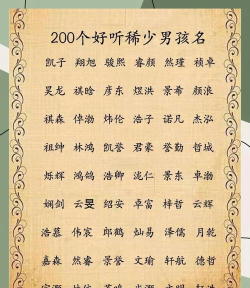 200个好听稀少男孩名
凯子 翔旭 骏熙 睿颜 然瑾 祯卓
昊龙 祺晗 彦东 煜洪 景希 颜浪
祺森 倬渤 炜伦 浩子 诺凡 杰泓
祖绅 林鸿 凯誉 君豪 誉勤 哲城
烁辉 鸿鸽 浩卿 泷仁 景东 卓渤
娴剑 云旻 绍安 卓富 梓哲 云辉
浩慕 伟宸 郎鹤 灿易 泽儒 月乾
嘉森 然睿 景誉 文瑜 轩航 德哲